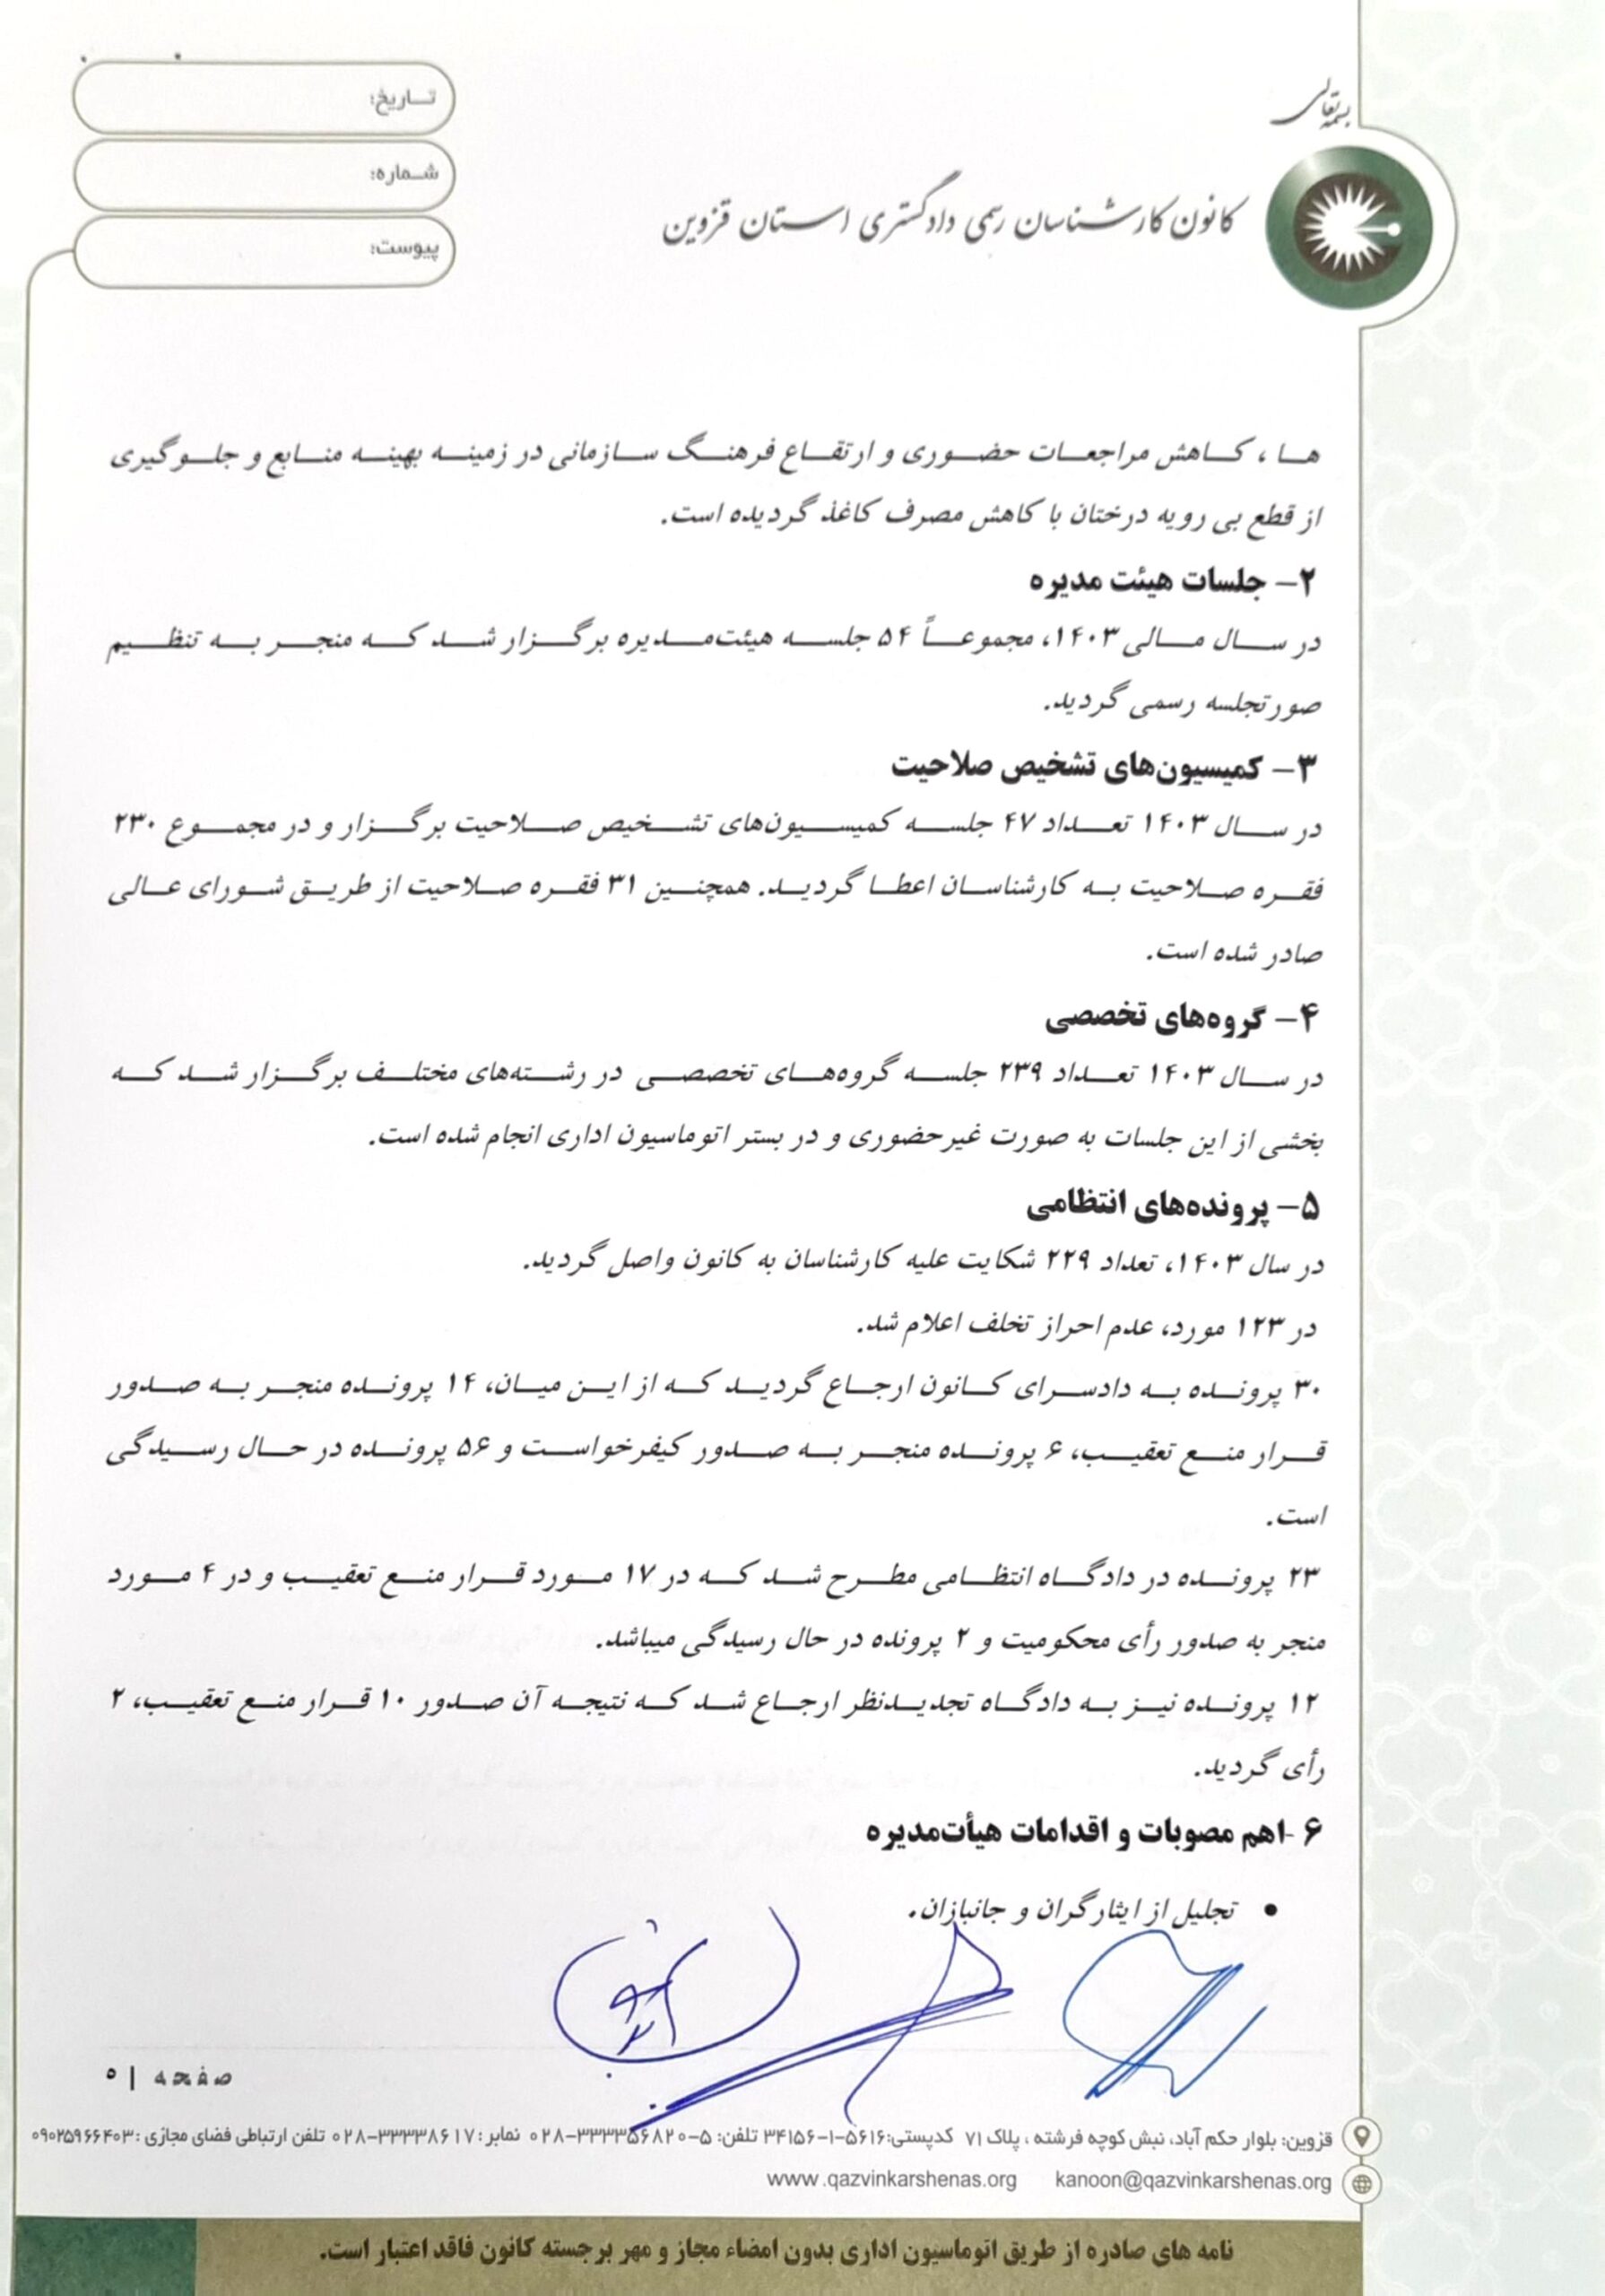 بسمه تعالی
کانون کارشناسان رسمی دادگستری استان قزوین
تاریخ:
شماره:
پیوست:
ها ، کاهش مراجعات حضوری و ارتقاع فرهنگ سازمانی در زمینه بهینه منابع و جلوگیری
از قطع بی رویه درختان با کاهش مصرف کاغذ گردیده است.
۲- جلسات هیئت مدیره
در سال مالی ۱۴۰۳، مجموعاً ۵۴ جلسه هیئت‌مدیره برگزار شد که منجر به تنظیم
صورتجلسه رسمی گردید.
۳- کمیسیون‌های تشخیص صلاحیت
در سال ۱۴۰۳ تعداد ۴۷ جلسه کمیسیون‌های تشخیص صلاحیت برگزار و در مجموع ۲۳۰
فقره صلاحیت به کارشناسان اعطا گردید. همچنین ۳۱ فقره صلاحیت از طریق شورای عالی
صادر شده است.
۴- گروه‌های تخصصی
در سال ۱۴۰۳ تعداد ۲۳۹ جلسه گروه‌های تخصصی در رشته‌های مختلف برگزار شد که
بخشی از این جلسات به صورت غیرحضوری و در بستر اتوماسیون اداری انجام شده است.
۵- پرونده‌های انتظامی
در سال ۱۴۰۳، تعداد ۲۲۹ شکایت علیه کارشناسان به کانون واصل گردید.
در ۱۲۳ مورد، عدم احراز تخلف اعلام شد.
۳۰ پرونده به دادسرای کانون ارجاع گردید که از این میان، ۱۴ پرونده منجر به صدور
قرار منع تعقیب، ۶ پرونده منجر به صدور کیفرخواست و ۵۶ پرونده در حال رسیدگی
است.
۲۳ پرونده در دادگاه انتظامی مطرح شد که در ۱۷ مورد قرار منع تعقیب و در ۴ مورد
منجر به صدور رأی محکومیت و ۲ پرونده در حال رسیدگی میباشد.
۱۲ پرونده نیز به دادگاه تجدیدنظر ارجاع شد که نتیجه آن صدور ۱۰ قرار منع تعقیب، ۲
رأی گردید.
۶ -اهم مصوبات و اقدامات هیأت‌مدیره
• تجلیل از ایثارگران و جانبازان.
صفحه | ۵
قزوین: بلوار حکم آباد، نبش کوچه فرشته ، پلاک ۷۱ کدپستی:۵۶۱۶-۱-۳۴۱۵۶ تلفن: ۵-۰۲۸-۳۳۳۳۵۶۸۲۰ نمابر: ۰۲۸-۳۳۳۳۸۶۱۷ تلفن ارتباطی فضای مجازی :۰۹۰۲۵۹۶۶۴۰۳
www.qazvinkarshenas.org kanoon@qazvinkarshenas.org
نامه های صادره از طریق اتوماسیون اداری بدون امضاء مجاز و مهر برجسته کانون فاقد اعتبار است.